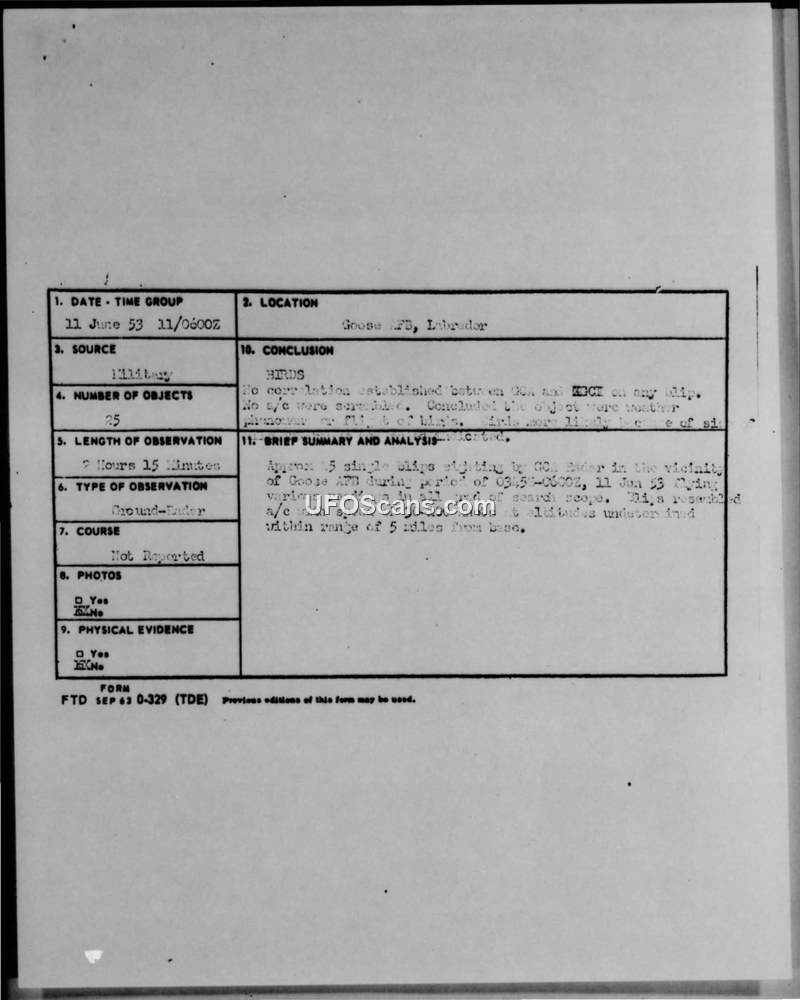 1. DATE - TIME GROUP
11 June 53 11/0600Z
2. LOCATION
Goose AFB, Labrador
3. SOURCE
Military
10. CONCLUSION
BIRDS
No correlation established between GCA and on any blip.
No a/c were scrambled. Concluded the object were weather
phenomenon or flight of birds. Birds more likely because of
4. NUMBER OF OBJECTS
25
5. LENGTH OF OBSERVATION
2 Hours 15 Minutes
11. BRIEF SUMMARY AND ANALYSIS
Approx 25 single blips sighting by GCA Radar in the vicinity
of Goose AFB during period of 0345-0600Z, 11 Jun 53 flying
various in all of search scope. Blips resembled
a/c at altitudes undetermined
within range of 5 miles from base.
6. TYPE OF OBSERVATION
Ground-Radar
7. COURSE
Not Reported
8. PHOTOS
□ Yes
No
9. PHYSICAL EVIDENCE
□ Yes
No
FORM
FTD SEP 63 0-329 (TDE) Previous editions of this form may be used.
UFOScans.com